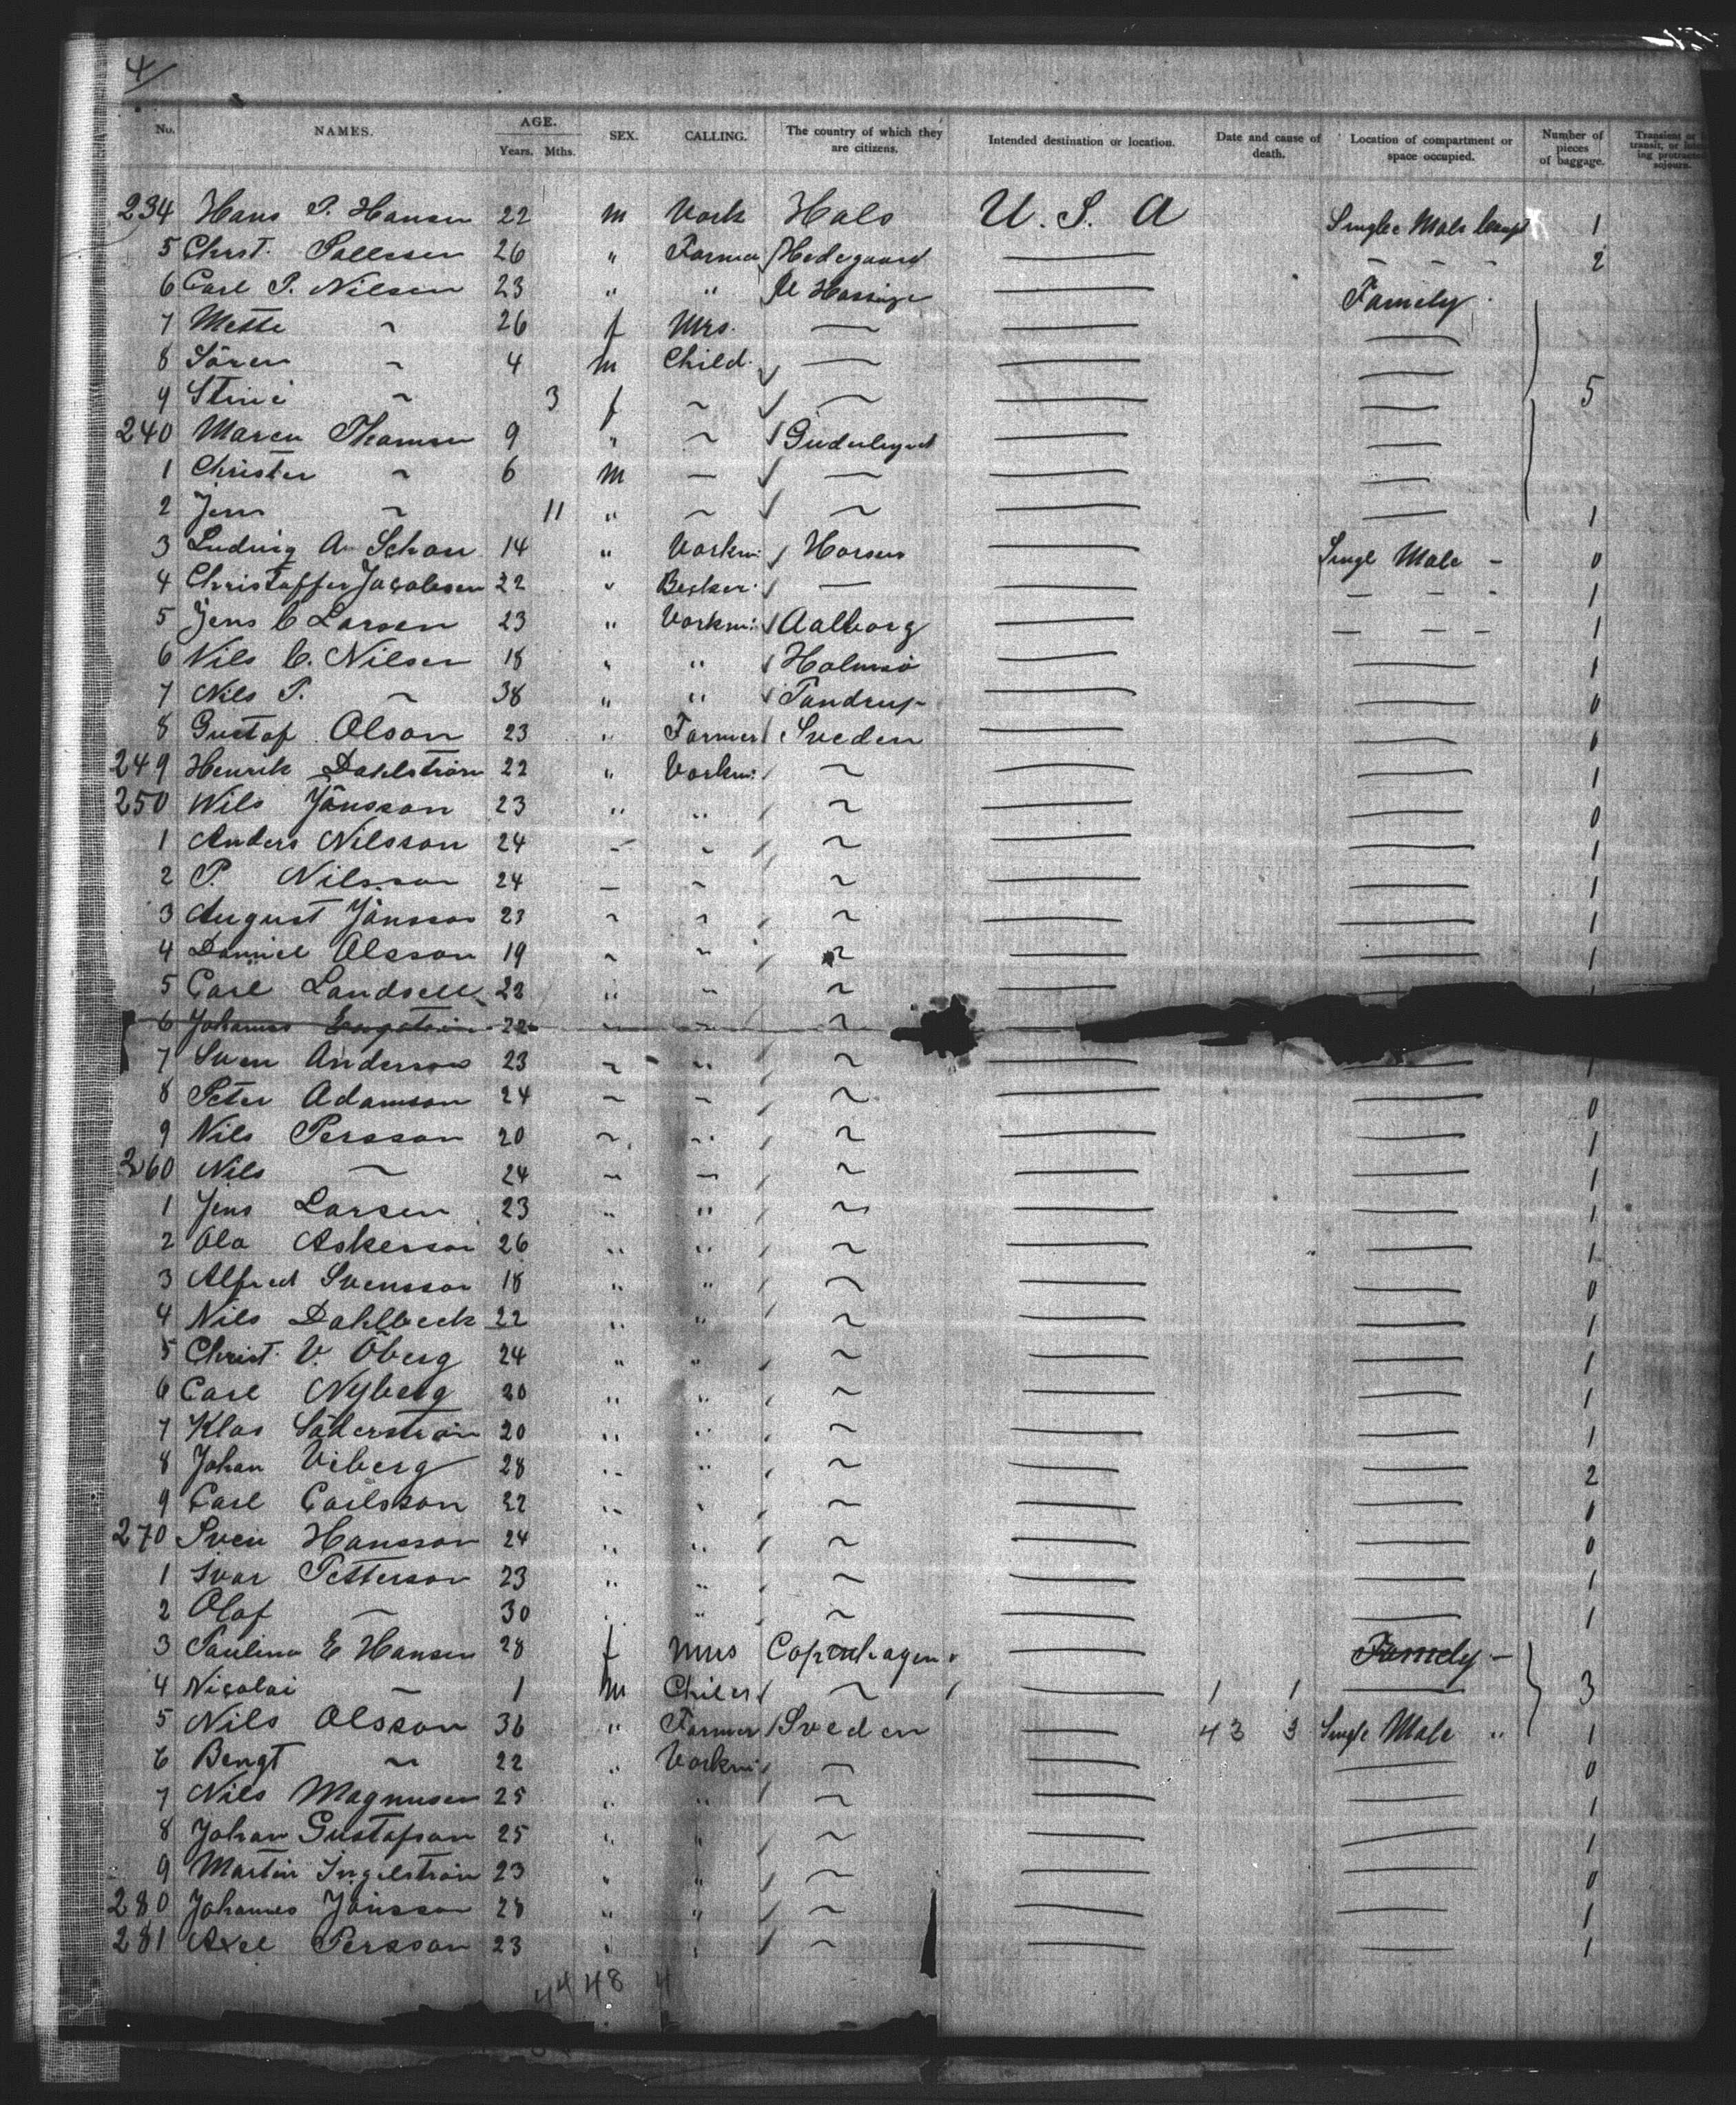 4
No. NAMES. AGE. Years. Mths. SEX. CALLING. The country of which they are citizens. Intended destination or location. Date and cause of death. Location of compartment or space occupied. Number of pieces of baggage. Transient or in transit, or intending protracted sojourn.
234 Hans P. Hansen 22 m Vork Hals U. S. A Single Male Compt 1
5 Christ. Pallesen 26 " Farmer Hedegaard — - - - 2
6 Carl P. Nilsen 23 " " — Famely
7 Mette ~ 26 f Mrs. — — —
8 Sören ~ 4 m Child — — —
9 Stine ~ 3 f ~ ~ — — 5
240 Maren Thomsen 9 " ~ — —
1 Christen ~ 6 m — — — —
2 Jens ~ 11 " ~ ~ — — 1
3 Ludvig A. Schou 14 " Vorkm: Horsens — Single Male - 0
4 Christoffer Jacobsen 22 " — — - - - 1
5 Jens C Larsen 23 " Vorkm: Aalborg — - - - 1
6 Nils C. Nilsen 18 " " — — 1
7 Nils P. ~ 38 " " Tandrup — — 0
8 Gustaf Olson 23 " Farmer Sveden — — 0
249 Henrik Dahlström 22 " Vorkm: ~ — — 1
250 Nils Jönsson 23 " " ~ — — 0
1 Anders Nilsson 24 - ~ ~ — — 1
2 P. Nilsson 24 - ~ ~ — — 1
3 August Jönsson 23 ~ ~ ~ — — 1
4 Daniel Olsson 19 ~ ~ ~ — — 1
5 Carl Landsell 23 " " ~ —
6 Johannes Engström 22 ~ ~ ~
7 Sven Anderson 23 ~ " ~ — — 1
8 Peter Adamson 24 ~ ~ ~ — — 0
9 Nils Persson 20 ~ " ~ — — 1
260 Nils ~ 24 ~ ~ ~ — — 1
1 Jens Larsen 23 " " ~ — — 1
2 Ola Askerson 26 " " ~ — — 1
3 Alfred Svensson 18 " " ~ — — 0
4 Nils Dahlbeck 22 " " ~ — — 1
5 Christ. V. Öberg 24 " " ~ — — 1
6 Carl Nyberg 20 " " ~ — — 1
7 Klas Söderström 20 " " ~ — — 1
8 Johan Viberg 28 " " ~ — — 2
9 Carl Carlsson 22 " " ~ — — 0
270 Sven Hansson 24 " " ~ — — 0
1 Ivar Petterson 23 " " ~ — — 1
2 Olaf ~ 30 " " ~ — — 1
3 Paulina E Hansen 28 f Mrs Copenhagen — Famely -
4 Nicolai ~ 1 m Child ~ — 1 1 — 3
5 Nils Olsson 36 " Farmer Sveden — 43 3 Single Male " 1
6 Bengt ~ 22 " Vorkm: ~ — — 0
7 Nils Magnusen 25 " " ~ — — 1
8 Johan Gustafson 25 " " ~ — — 1
9 Martin Ingelström 23 " " ~ — — 0
280 Johannes Jönsson 28 " " ~ — — 1
281 Axel Persson 23 " " ~ — — 1
44 48 4